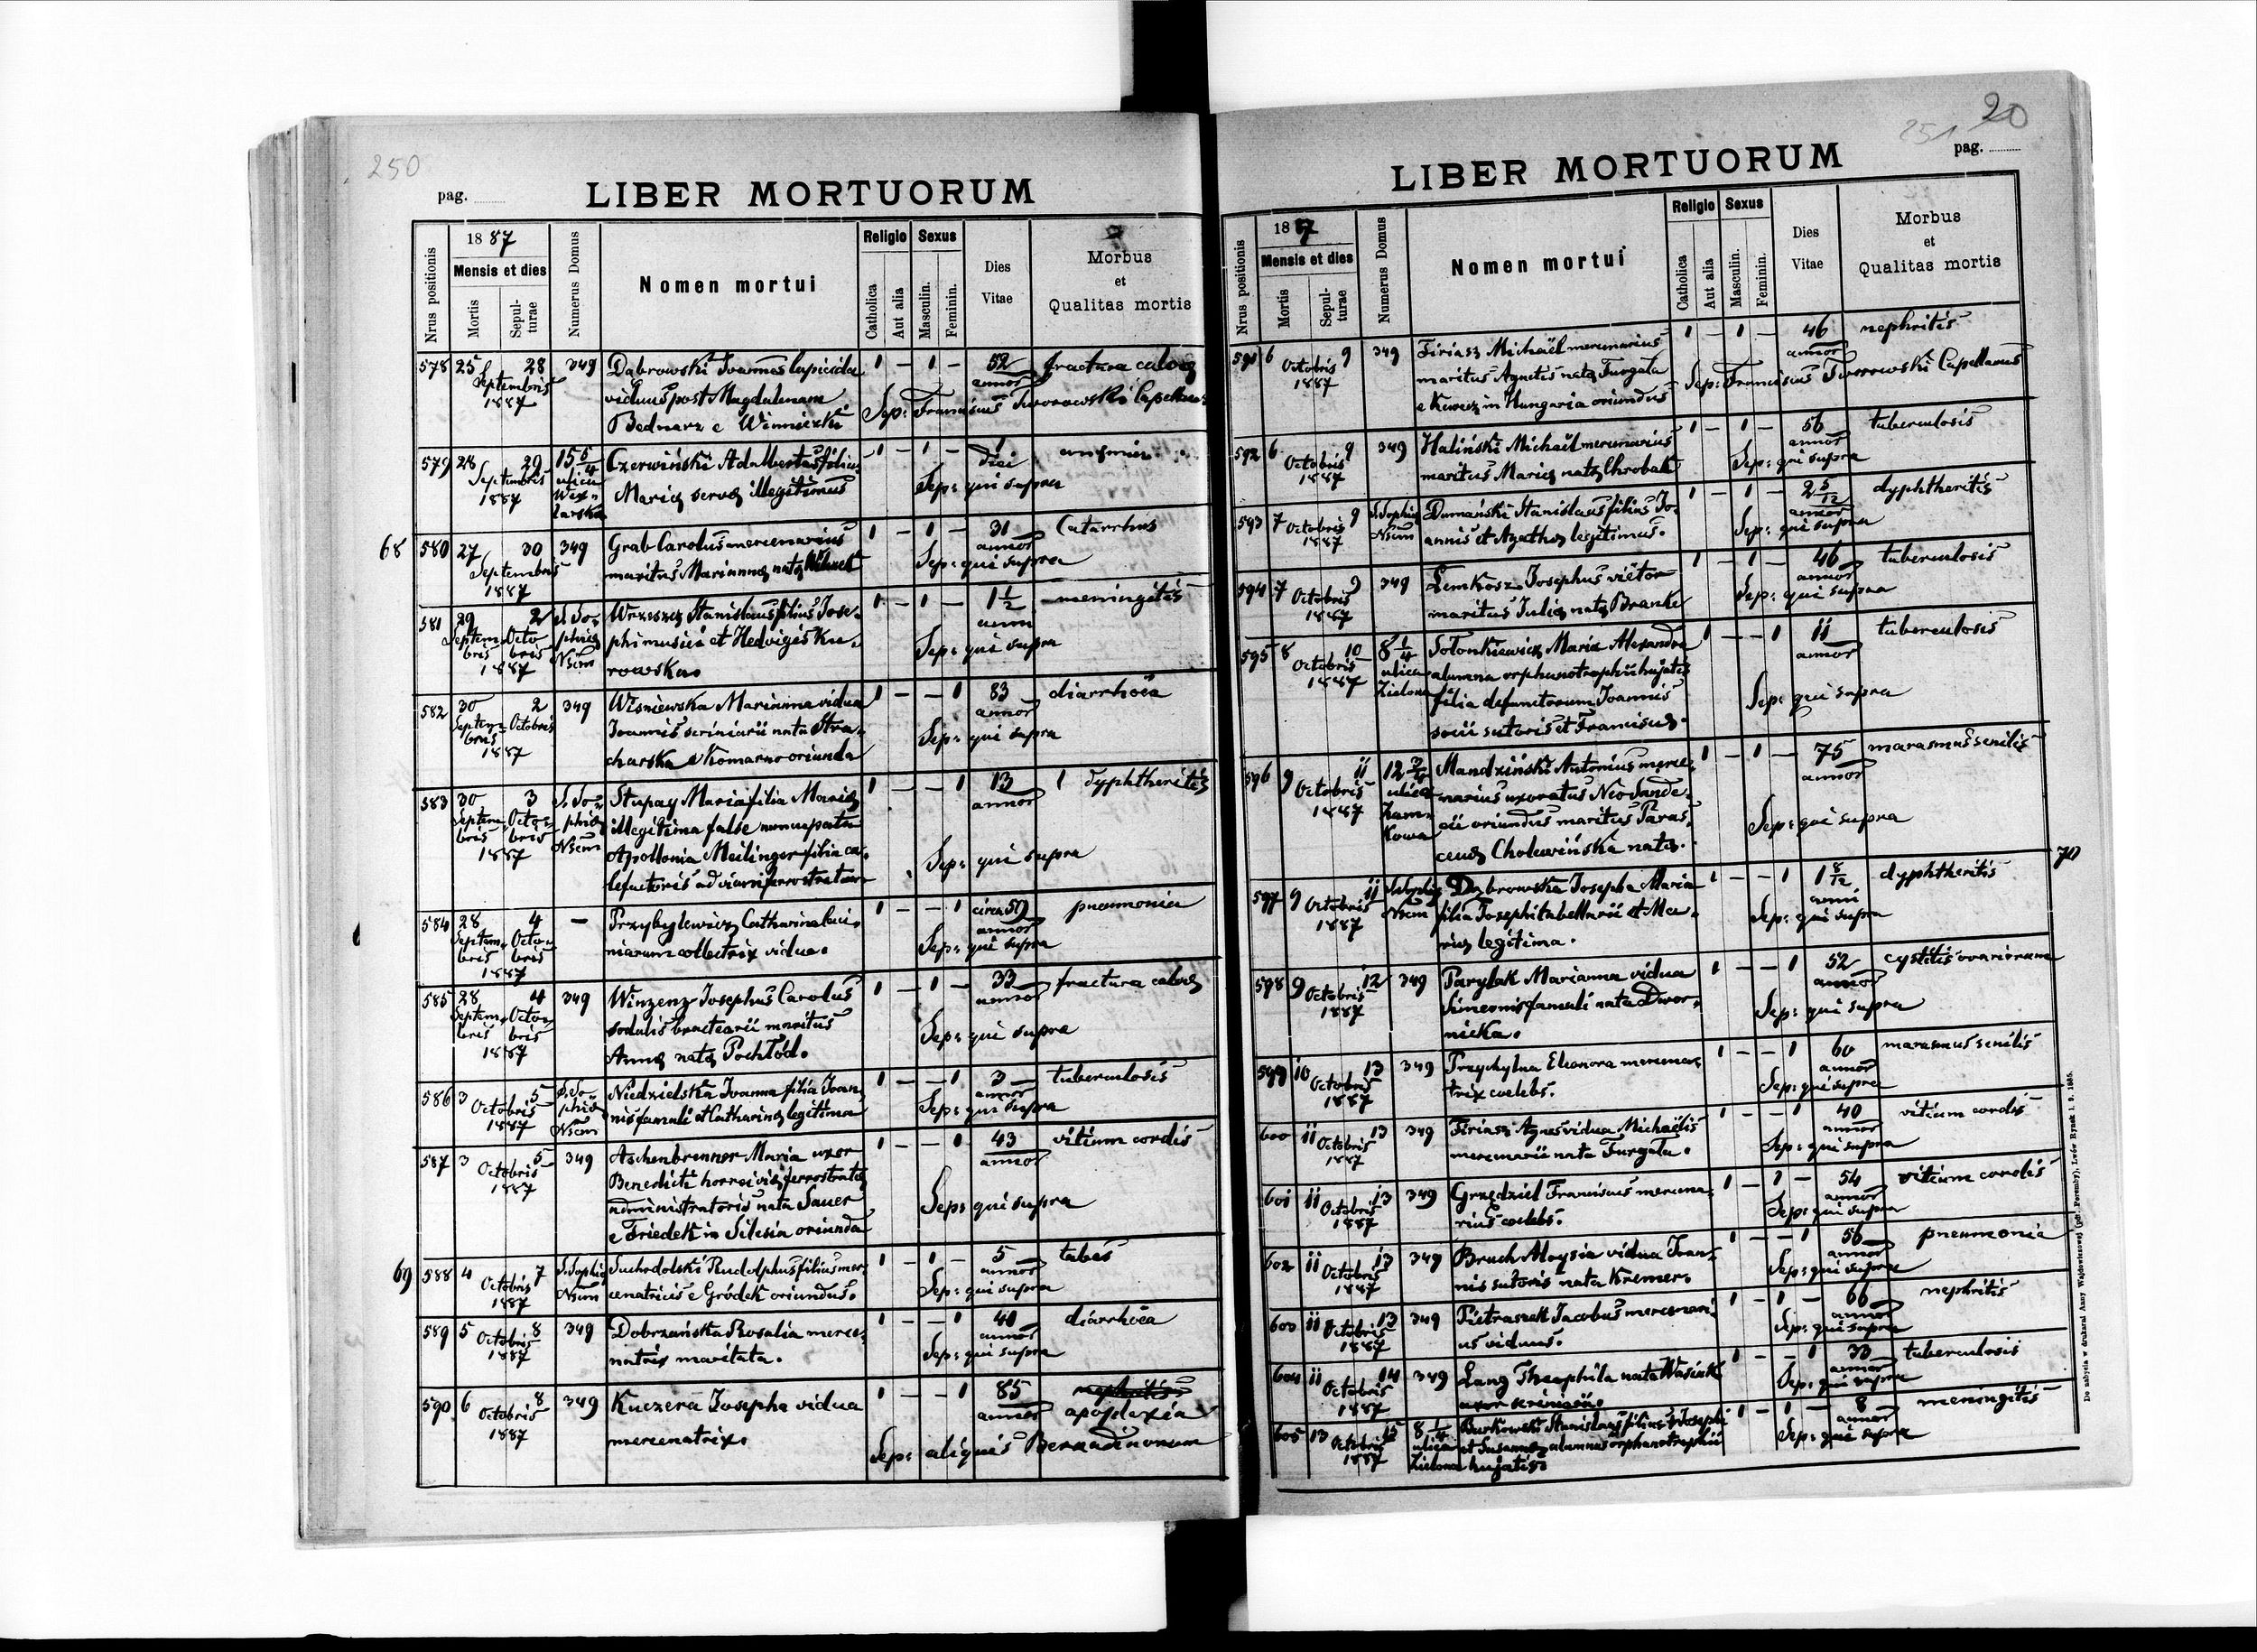 250
pag.
LIBER MORTUORUM
Nrus positionis
1887
Mensis et dies
Mortis
Sepulturae
Numerus Domus
Nomen mortui
Religio
Catholica
Aut alia
Sexus
Masculin.
Feminin.
Dies
Vitae
Morbus
et
Qualitas mortis
578 25 28 349 Dąbrowski Joannes lapicida 1 – 1 – 52 fractura
Septembris viduus post Magdalenam annor
1887 Bednarz e Winniczki Sep: Franciscus Tworowski Capellanus
579 28 29 15 5/4 Czerwiński Adalbertus filius 1 – 1 – 1
Septembris ulica Mariæ servæ illegitimus diei
1887 Sep: qui supra
68 580 27 30 349 Grab Carolus mercenarius 1 – 1 – 31 Catarrhus
Septembris maritus Mariannæ natæ annor
1887 Sep: qui supra
581 29 2 S. So- Wrzeszcz Stanislaus filius Jose- 1 – 1 – 1 1/2 meningitis
Septem- Octo- phiæ phi musici et Hedvigis Ku- anni
bris bris Nsum rowska. Sep: qui supra
1887
582 30 2 349 Wiśniewska Marianna vidua 1 – – 1 83 diarrhöea
Septem- Octobris Joannis scriniarii nata Stra- annor
bris charska e Komarno oriunda Sep: qui supra
1887
583 30 3 S. So- Stupay Maria filia Mariæ 1 – – 1 13 dyphtheritis
Septem- Octo- phiæ illegitima false nuncupata annor
bris bris Nsum Apollonia Meilinger filia ca-
1887 lefactoris ad viam ferrostratam Sep: qui supra
584 28 4 – Przybylewicz Catharina laci- 1 – – 1 circa 50 pneumonia
Septem- Octo- niarum collectrix vidua. annor
bris bris Sep: qui supra
1887
585 28 4 349 Winzenz Josephus Carolus 1 – 1 – 33 fractura
Septem- Octo- sodalis bractearii maritus annor
bris bris Annæ natæ Pochłód. Sep: qui supra
1887
586 3 5 S. So- Niedzielska Joanna filia Joan- 1 – – 1 3 tuberculosis
Octobris phiæ nis famuli et Catharinæ legitima annor
1887 Nsum Sep: qui supra
587 3 5 349 Aschenbrenner Maria uxor 1 – – 1 43 vitium cordis
Octobris Benedicti horrei viæ ferrostratæ annor
1887 administratoris nata Sauer Sep: qui supra
e Friedek in Silesia oriunda
69 588 4 7 S. Sophiæ Suchodolski Rudolphus filius mer- 1 – 1 – 5 tabes
Octobris Nsum cenatricis e Gródek oriundus. annor
1887 Sep: qui supra
589 5 8 349 Dobrzańska Rosalia merce- 1 – – 1 40 diarrhöea
Octobris natrix maritata. annor
1887 Sep: qui supra
590 6 8 349 Kuczera Josepha vidua 1 – – 1 85 nephritis
Octobris mercenatrix. annor apoplexia
1887 Sep: aliquis Bernadinorum
251 20
pag.
LIBER MORTUORUM
Nrus positionis
1887
Mensis et dies
Mortis
Sepulturae
Numerus Domus
Nomen mortui
Religio
Catholica
Aut alia
Sexus
Masculin.
Feminin.
Dies
Vitae
Morbus
et
Qualitas mortis
591 6 9 349 Firiasz Michaël mercenarius 1 – 1 – 46 nephritis
Octobris maritus Agnetis natæ Furgała annor
1887 e in Hungaria oriundus Sep: Franciscus Tworowski Capellanus
592 6 9 349 Haliński Michaël mercenarius 1 – 1 – 56 tuberculosis
Octobris maritus Mariæ natæ Chrobak annor
1887 Sep: qui supra
593 7 9 S. Sophiæ Dumański Stanislaus filius Jo- 1 – 1 – 2 5/12 dyphtheritis
Octobris Nsum annis et Agathæ legitimus. annor
1887 Sep: qui supra
594 7 9 349 Lemkosz Josephus vietor 1 – 1 – 46 tuberculosis
Octobris maritus Juliæ natæ Branke annor
1887 Sep: qui supra
595 8 10 8 1/4 Sołonkiewicz Maria Alexandra 1 – – 1 11 tuberculosis
Octobris ulica alumna orphanotrophii hujatis annor
1887 Zielona filia defunctorum Joannis Sep: qui supra
socii sutoris et Franciscæ.
596 9 11 12 3/4 Mandziński Antonius merce- 1 – 1 – 75 marasmus senilis
Octobris ulica narius uxoratus Neo Sande- annor
1887 cii oriundus maritus Paras- Sep: qui supra
ceuæ Cholewińska natæ.
597 9 11 S. Sophiæ Dąbrowska Josepha Maria 1 – – 1 1 8/12 dyphtheritis 70
Octobris Nsum filia Josephi tabellarii et Ma- anni
1887 riæ legitima. Sep: qui supra
598 9 12 349 Parylak Marianna vidua 1 – – 1 52 cystitis ovariorum
Octobris Simeonis famuli nata Dwor- annor
1887 nicka. Sep: qui supra
599 10 13 349 Przychylna Eleonora mercena- 1 – – 1 60 marasmus senilis
Octobris trix coelebs. annor
1887 Sep: qui supra
600 11 13 349 Firiasz Agnes vidua Michaëlis 1 – – 1 40 vitium cordis
Octobris mercenarii nata Furgała. annor
1887 Sep: qui supra
601 11 13 349 Grzędziel Franciscus mercena- 1 – 1 – 54 vitium cordis
Octobris rius coelebs. annor
1887 Sep: qui supra
602 11 13 349 Bruch Aloysia vidua Joan- 1 – – 1 56 pneumonia
Octobris nis sutoris nata Kremer. annor
1887 Sep: qui supra
603 11 13 349 Pietraszek Jacobus mercenari- 1 – 1 – 66 nephritis
Octobris us viduus. annor
1887 Sep: qui supra
604 11 14 349 Lang Theophila nata Wasiuk 1 – – 1 33 tuberculosis
Octobris uxor scriniarii. annor
1887 Sep: qui supra
605 13 15 8 1/4 Burkowski Stanislaus filius Josephi 1 – 1 – 8 meningitis
Octobris ulica et Susannæ alumnus orphanotrophii annor
1887 Zielona hujatis. Sep: qui supra
Do nabycia w drukarni Anny Wajdowiczowej (pod Poremby), Lwów Rynek l. 9. 1885.